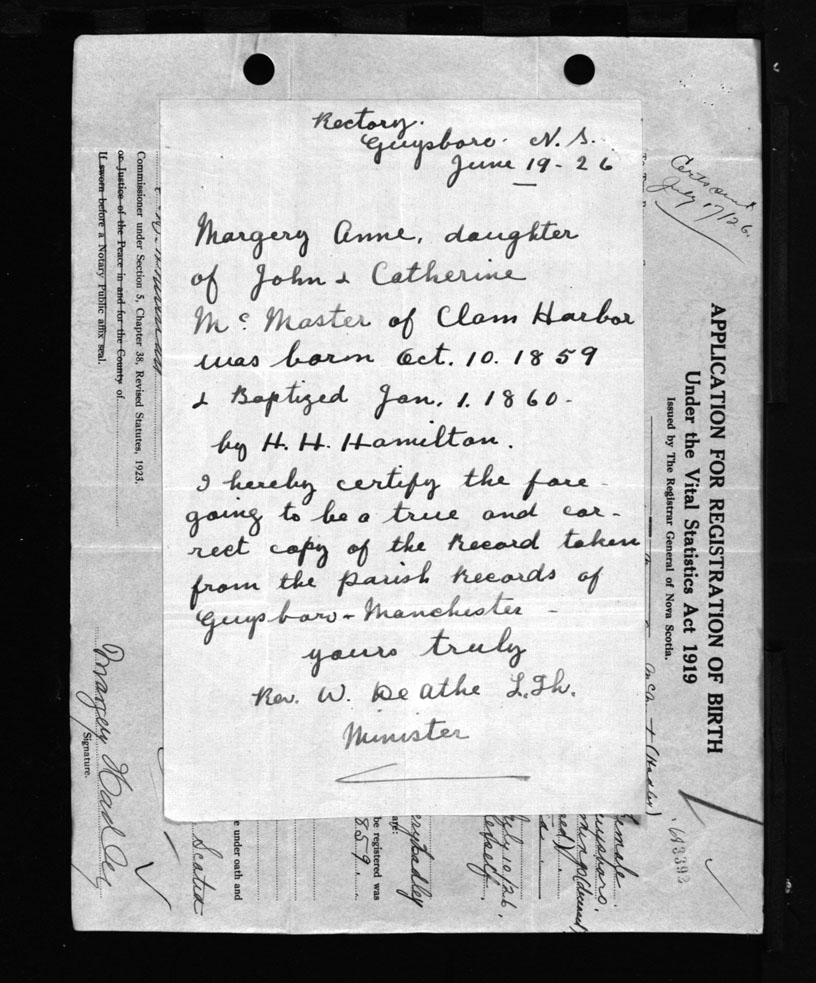 Rectory.
Guysboro. N. S.
June 19 - 26
Margery Anne, daughter
of John & Catherine
Mc Master of Clam Harbor
was born Oct. 10. 1859
& Baptized Jan. 1. 1860 -
by H. H. Hamilton.
I hereby certify the fore-
going to be a true and cor-
rect copy of the Record taken
from the parish Records of
Guysboro - Manchester -
yours truly
Rev. W. De Athe L. Th.
Minister
July 17/26.
APPLICATION FOR REGISTRATION OF BIRTH
Under the Vital Statistics Act 1919
Issued by The Registrar General of Nova Scotia.
(Hadley)
613393
July 10/26.
be registered was
859
are:
Hadley
e under oath and
Scotia
Commissioner under Section 5, Chapter 38, Revised Statutes, 1923.
or Justice of the Peace in and for the County of
If sworn before a Notary Public affix seal.
Margery Hadley
Signature.